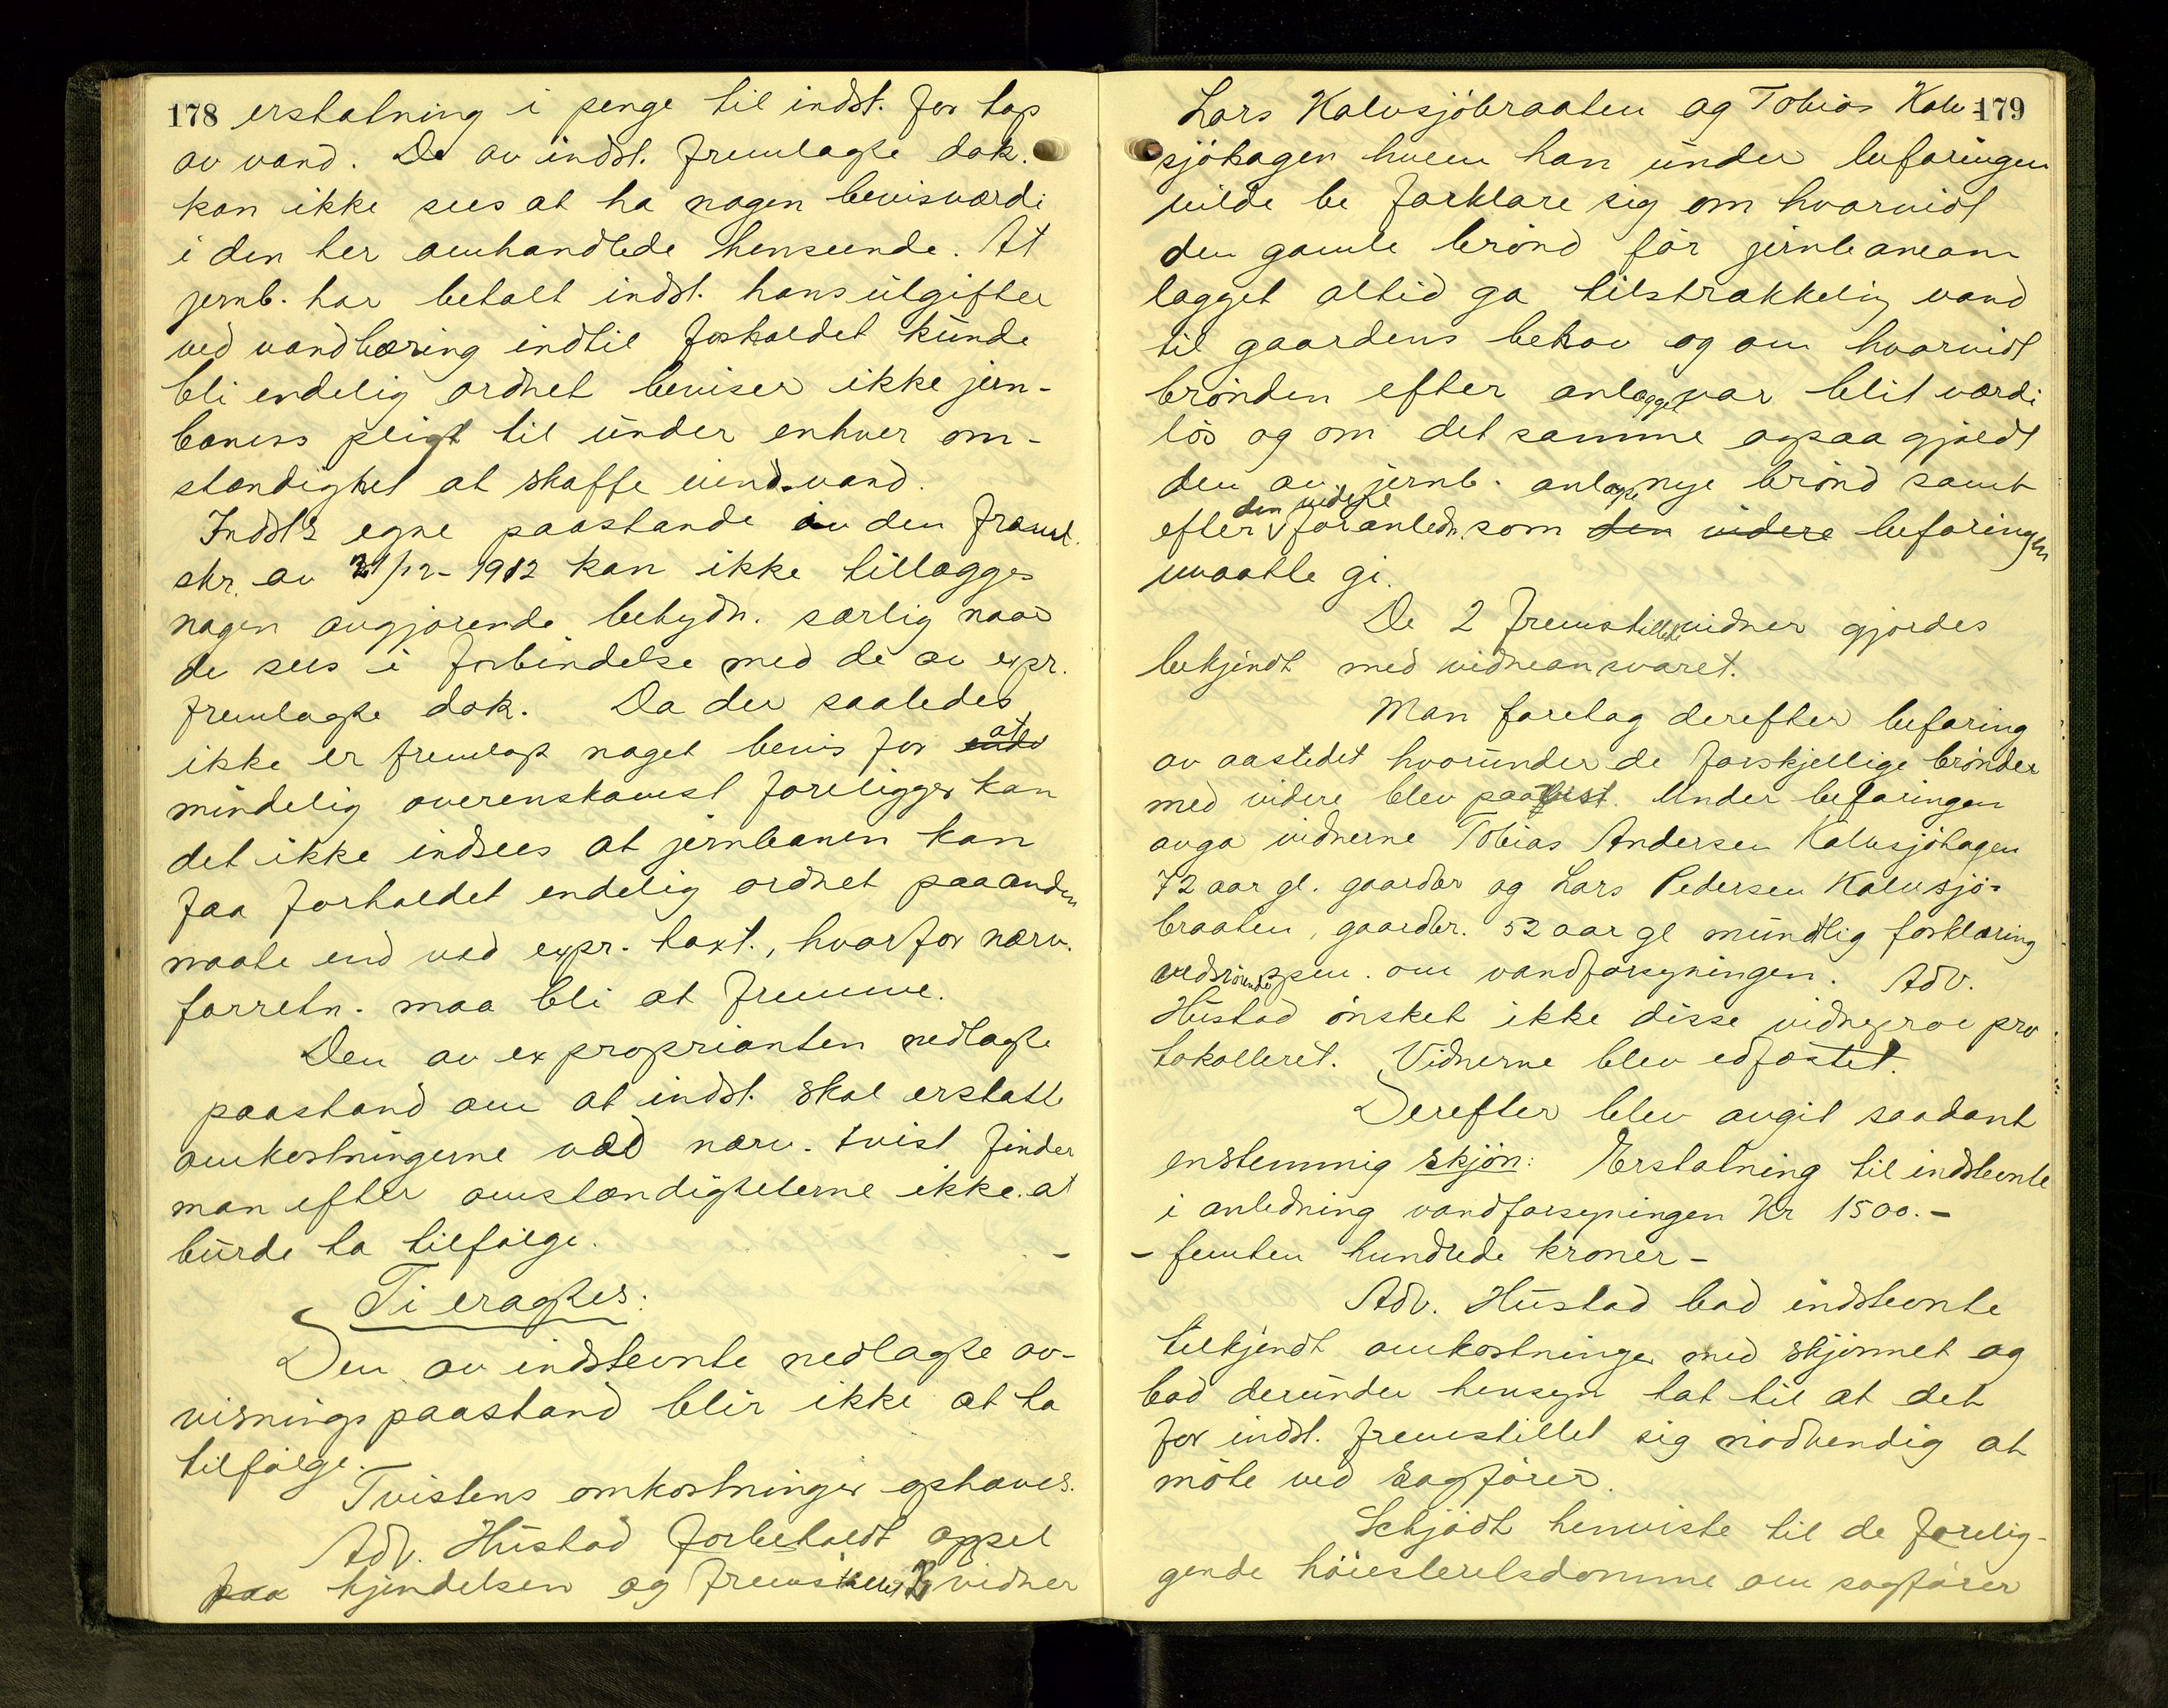 178 erstatning i penge til indst. for tap
av vand. De av indst. fremlagte dok.
kan ikke sees at ha nogen bevisværdi
i den her omhandlede henseende. At
jernb. har betalt indst. hans utgifter
ved vandbæring indtil forholdet kunde
bli endelig ordnet beviser ikke jern-
banens pligt til under enhver om-
stændighet at skaffe vand.
Indst's egne paastande av den freml.
skr. av 21/12-1912 kan ikke tillægges
nogen avgjørende betydn. særlig naar
de sees i forbindelse med de av expr.
fremlagte dok. Da der saaledes
ikke er fremlagt noget bevis for at
mindelig overenskomst foreligger kan
det ikke indsees at jernbanen kan
faa forholdet endelig ordnet paa anden
maate end ved expr. taxt., hvorfor nærv.
forretn. maa bli at fremme.
Den av exproprianten nedlagte
paastand om at indst. skal erstatte
omkostningerne ved nærv. tvist finder
man efter omstændighetene ikke at
burde ta tilfølge. -
Ti eragtes:
Den av indstevnte nedlagte av-
visningspaastand blir ikke at ta
tilfølge.
Tvistens omkostninger ophæves.
Adv. Hustad forbeholdt appel
paa kjendelsen og fremstillet 2 vidner
Lars Kalvsjöbraaten og Tobias Kalv- 179
sjöhagen hvem han under befaringen
vilde be forklare sig om hvorvidt
den gamle brönd för jernbanean
lægget altid ga tilstrækkelig vand
til gaardens behov og om hvorvidt
brönden efter anlægget var blit værdi
lös og om det samme ogsaa gjældt
den av jernb. anlagte nye brönd samt
efter den videre foranledn. som den videre befaringen
maatte gi.
De 2 fremstillede vidner gjordes
bekjendt med vidneansvaret.
Man foretog derefter befaring
av aastedet hvorunder de forskjellige brönder
med videre blev paavist. Under befaringen
avga vidnerne Tobias Andersen Kalvsjöhagen
72 aar gl. gaardbr og Lars Pedersen Kalvsjö-
braaten, gaardbr. 52 aar gl mundtlig forklaring
vedrörende spm. om vandforsyningen. Adv.
Hustad önsket ikke disse vidneprov pro
tokolleret. Vidnerne blev edfæstet.
Derefter blev avgit saadant
enstemmig skjön: Erstatning til indstevnte
i anledning vandforsyningen Kr 1500.-
- femten hundrede kroner -
Adv. Hustad bad indstevnte
tilkjendt omkostninger med skjönnet og
bad derunder hensyn tat til at det
for indst. fremstillet sig nödvendig at
möte ved sagförer.
Schjödt henviste til de forelig-
gende höiesteretsdomme om sagförer